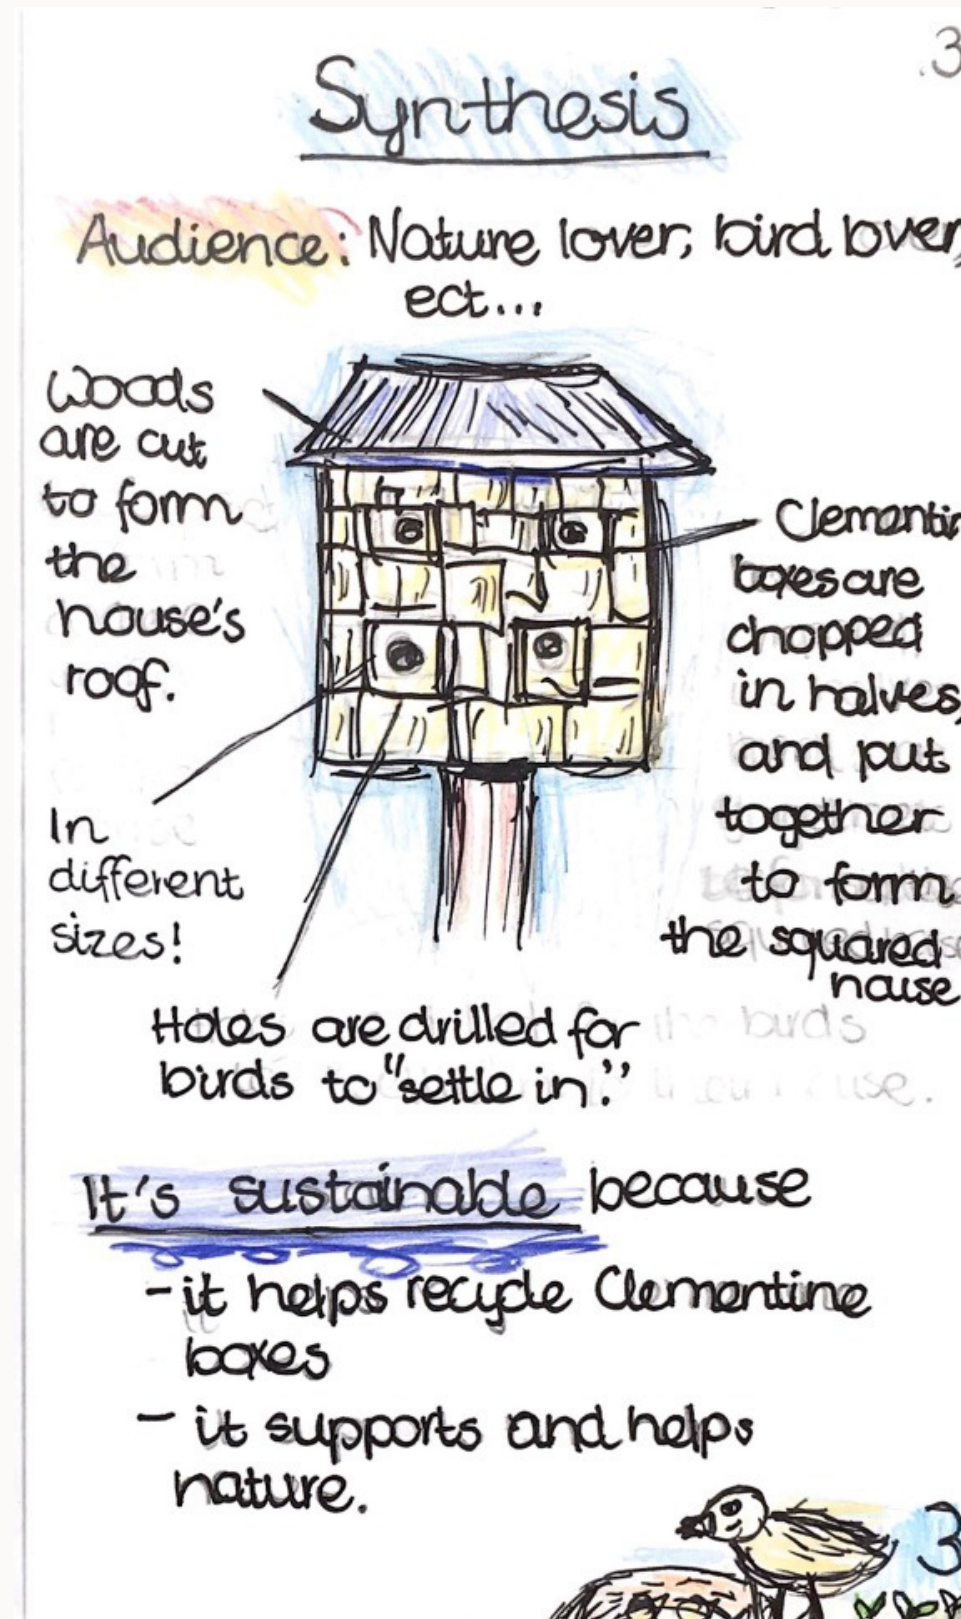 3
Synthesis
Audience: Nature lover, bird lover,
ect...
Woods
are cut
to form
the
house's
roof.
Clementin
boxes are
chopped
in halves,
and put
together
to form
the squared
house
In
different
sizes!
Holes are drilled for
birds to "settle in."
the birds
use.
It's sustainable because
- it helps recycle Clementine
boxes
- it supports and helps
nature.
3